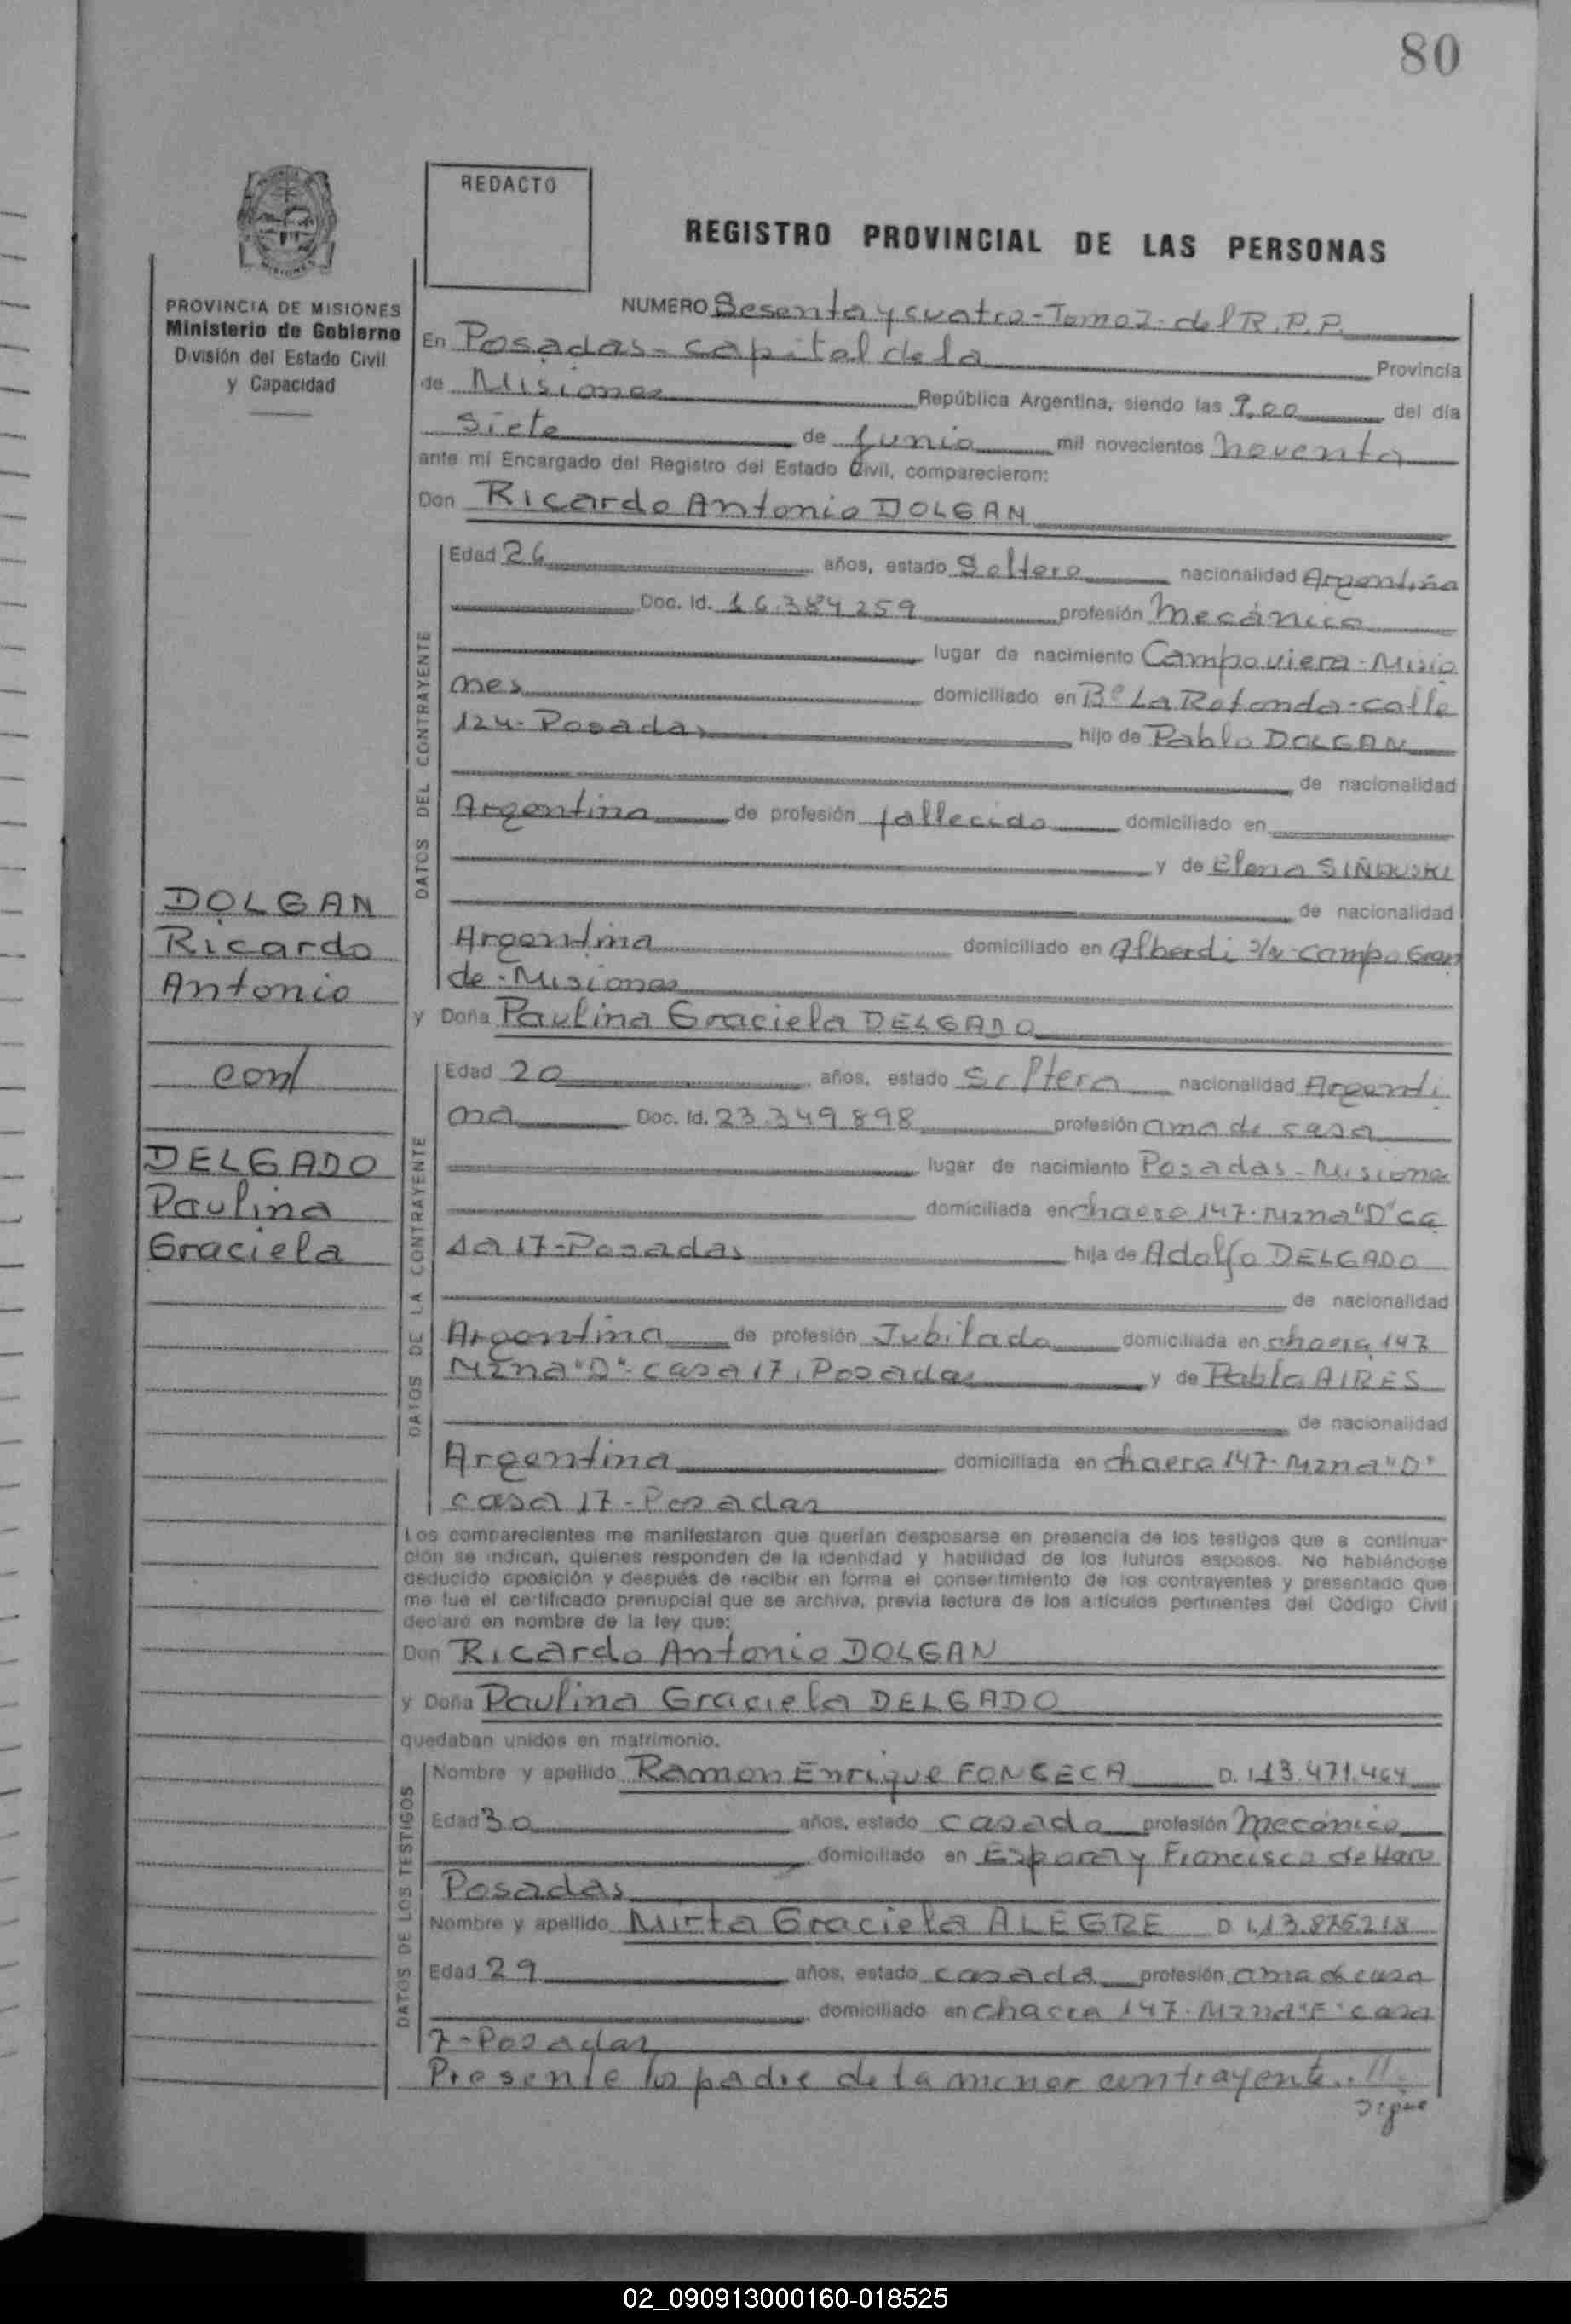 80
REDACTO
REGISTRO PROVINCIAL DE LAS PERSONAS
PROVINCIA DE MISIONES
Ministerio de Gobierno
División del Estado Civil
y Capacidad
NUMERO Sesenta y cuatro - Tomo 2 - del R.P.P.
En Posadas - capital de la Provincia
de Misiones República Argentina, siendo las 9,00 del día
Siete de Junio mil novecientos noventa
ante mí Encargado del Registro del Estado Civil, comparecieron:
Don Ricardo Antonio DOLGAN
DATOS DEL CONTRAYENTE
Edad 26 años, estado Soltero nacionalidad Argentina
Doc. Id. 16.384.259 profesión Mecánico
lugar de nacimiento Campo viera - Misio
nes domiciliado en Bº La Rotonda - calle
124 - Posadas hijo de Pablo DOLGAN
de nacionalidad
Argentina de profesión fallecido domiciliado en
y de Elena
de nacionalidad
Argentina domiciliado en Alberdi s/n - campo Gran
de - Misiones
y Doña Paulina Graciela DELGADO
DOLGAN
Ricardo
Antonio
con
DELGADO
Paulina
Graciela
DATOS DE LA CONTRAYENTE
Edad 20 años, estado Soltera nacionalidad Argenti
na Doc. Id. 23.349.898 profesión ama de casa
lugar de nacimiento Posadas - Misiones
domiciliada en chacra 147 - Mzna "D" ca
sa 17 - Posadas hija de Adolfo DELGADO
de nacionalidad
Argentina de profesión Jubilado domiciliada en chacra 147
Mzna "D" - casa 17, Posadas y de Pabla AIRES
de nacionalidad
Argentina domiciliada en chacra 147 - Mzna "D"
casa 17 - Posadas
Los comparecientes me manifestaron que querían desposarse en presencia de los testigos que a continua-
ción se indican, quienes responden de la identidad y habilidad de los futuros esposos. No habiéndose
deducido oposición y después de recibir en forma el consentimiento de los contrayentes y presentado que
me fue el certificado prenupcial que se archiva, previa lectura de los artículos pertinentes del Código Civil
declaro en nombre de la ley que:
Don Ricardo Antonio DOLGAN
y Doña Paulina Graciela DELGADO
quedaban unidos en matrimonio.
DATOS DE LOS TESTIGOS
Nombre y apellido Ramon Enrique FONSECA D. I. 13.471.464
Edad 30 años, estado casado profesión Mecánico
domiciliado en y Francisco de Haro
Posadas
Nombre y apellido Mirta Graciela ALEGRE D. I. 13.875.218
Edad 29 años, estado casada profesión ama de casa
domiciliado en chacra 147 - Mzna "F" casa
7 - Posadas
Presente los padre de la menor contrayente..//.
sigue
02_090913000160-018525